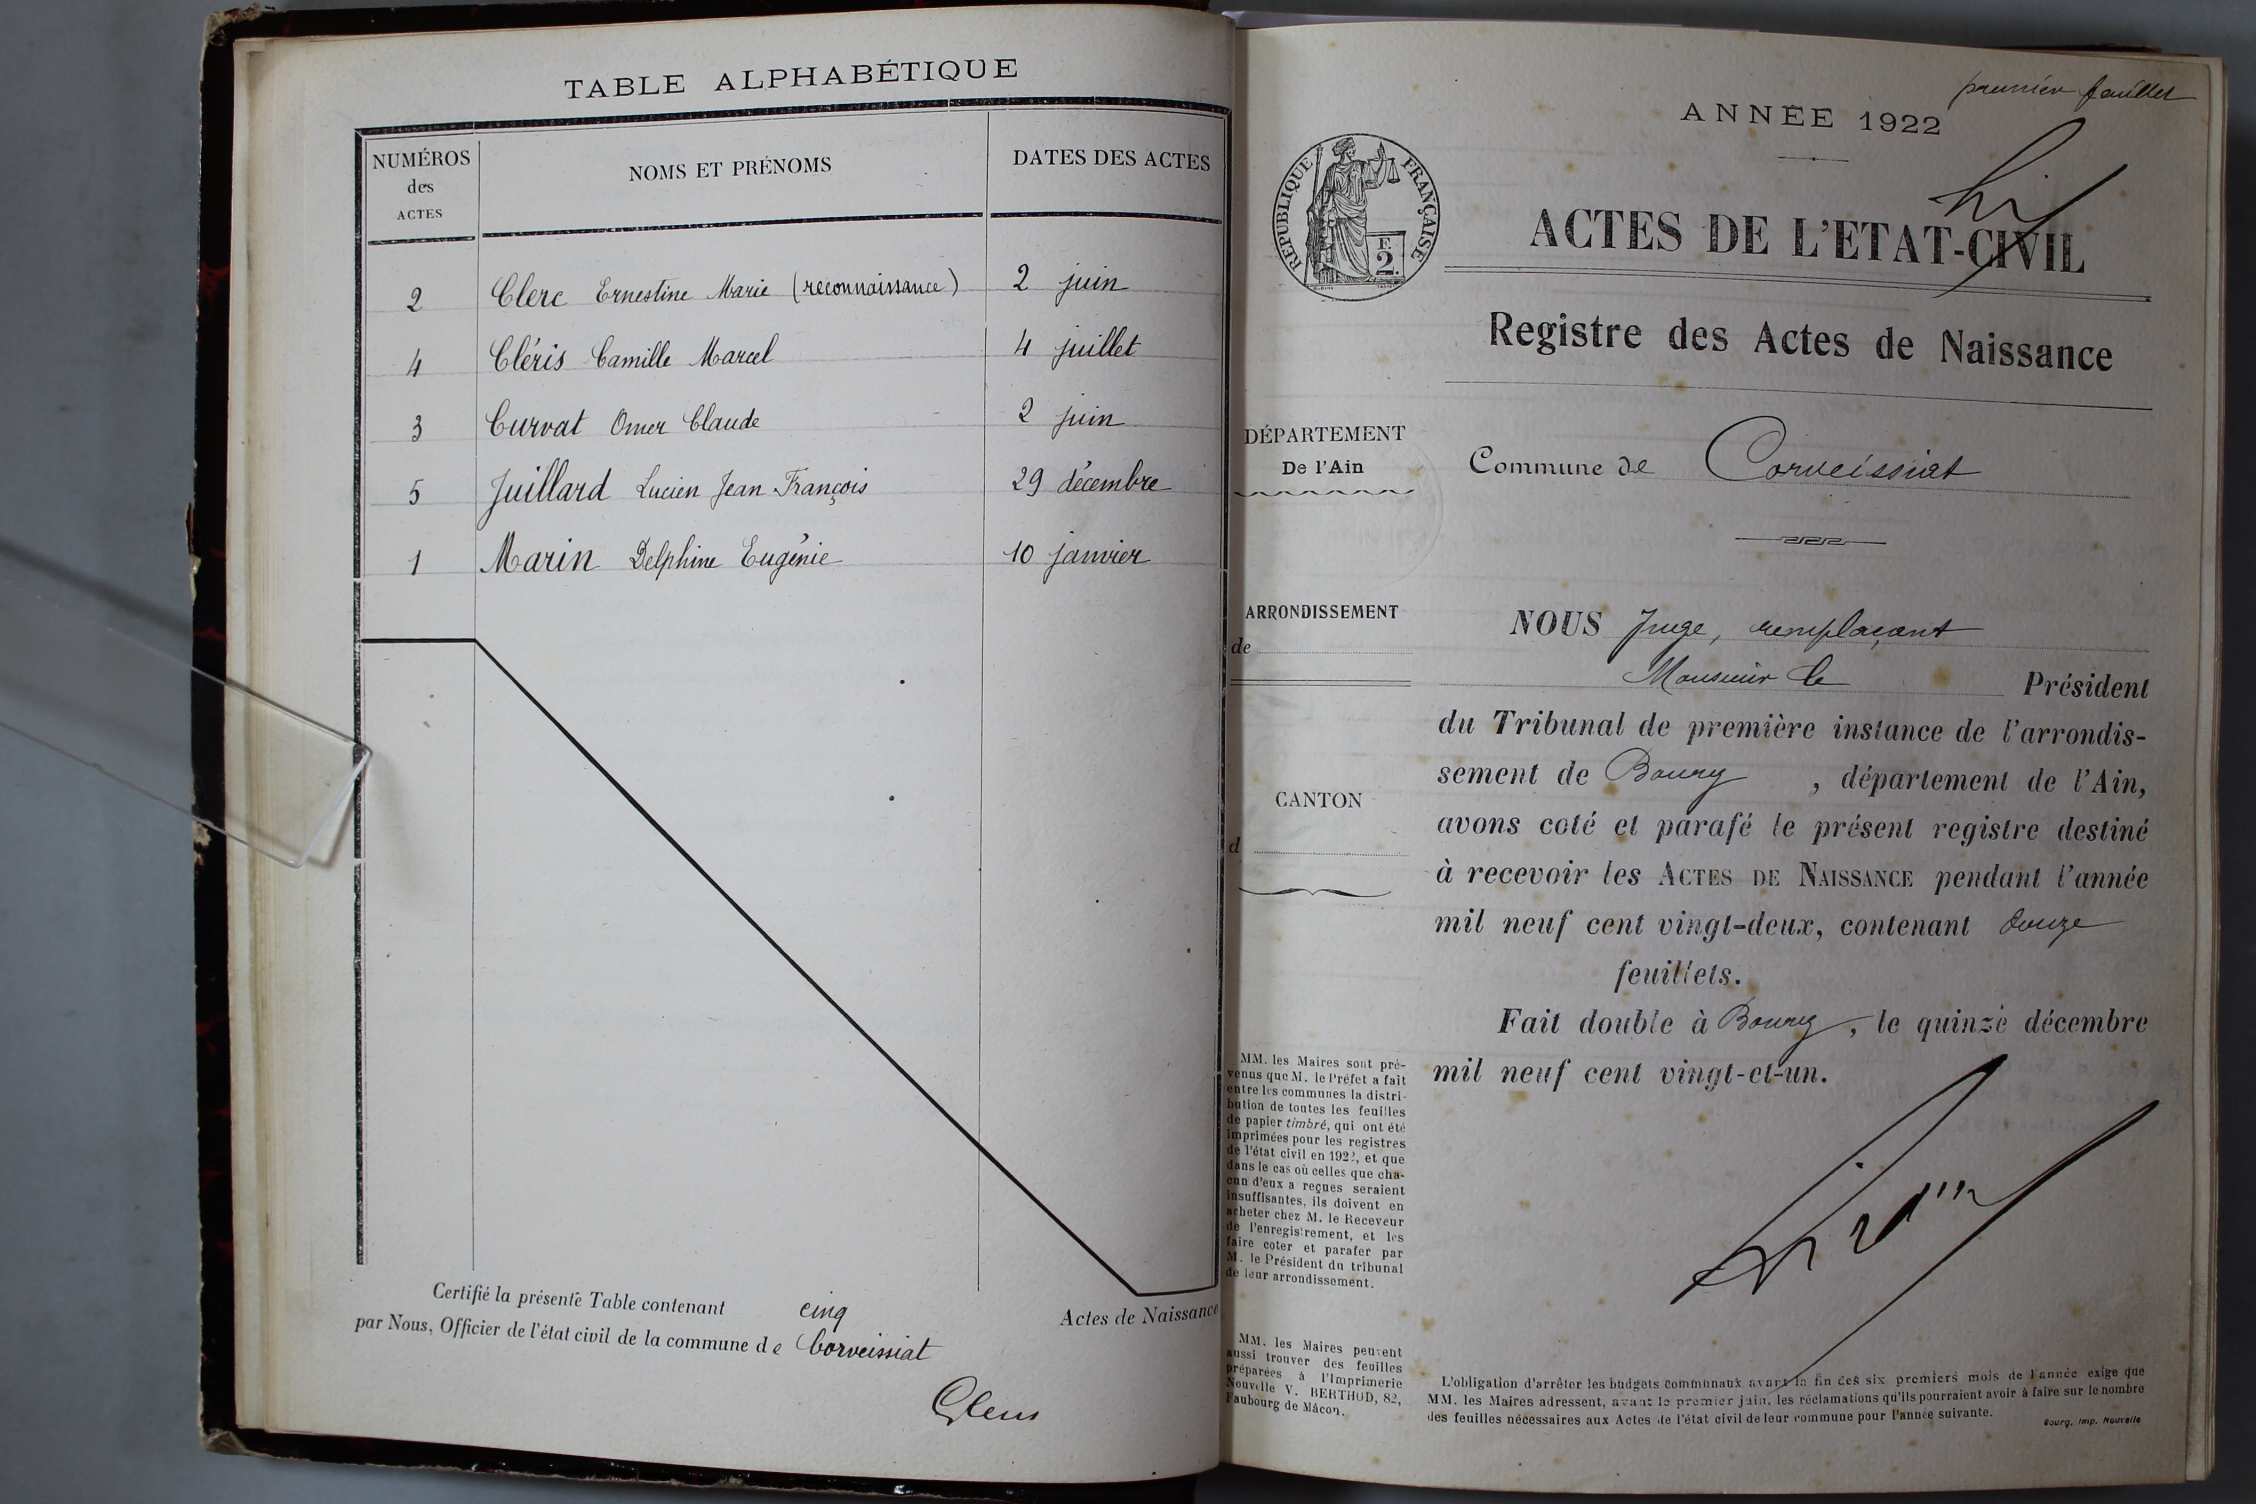 TABLE ALPHABÉTIQUE
NUMÉROS
des
ACTES
NOMS ET PRÉNOMS
DATES DES ACTES
2 Clerc Ernestine Marie (reconnaissance) 2 juin
4 Cléris Camille Marcel 4 juillet
3 Curvat Omer Claude 2 juin
5 Juillard Lucien Jean François 29 décembre
1 Marin Delphine Eugénie 10 janvier
Certifié la présente Table contenant cinq Actes de Naissance
par Nous, Officier de l'état civil de la commune de Corveissiat
premier feuillet
ANNÉE 1922
RÉPUBLIQUE FRANÇAISE
F.
2.
ACTES DE L'ETAT-CIVIL
Registre des Actes de Naissance
DÉPARTEMENT
De l'Ain
Commune de Corveissiat
ARRONDISSEMENT
de
CANTON
d
NOUS Juge, remplaçant
Monsieur le Président
du Tribunal de première instance de l'arrondis-
sement de Bourg, département de l'Ain,
avons coté et parafé le présent registre destiné
à recevoir les ACTES DE NAISSANCE pendant l'année
mil neuf cent vingt-deux, contenant douze
feuillets.
Fait double à Bourg, le quinze décembre
mil neuf cent vingt-et-un.
MM. les Maires sont pré-
venus que M. le Préfet a fait
entre les communes la distri-
bution de toutes les feuilles
de papier timbré, qui ont été
imprimées pour les registres
de l'état civil en 1922, et que
dans le cas où celles que cha-
cun d'eux a reçues seraient
insuffisantes, ils doivent en
acheter chez M. le Receveur
de l'enregistrement, et les
faire coter et parafer par
M. le Président du tribunal
de leur arrondissement.
MM. les Maires peuvent
aussi trouver des feuilles
préparées à l'Imprimerie
Nouvelle V. BERTHOD, 82,
Faubourg de Mâcon.
L'obligation d'arrêter les budgets communaux avant la fin des six premiers mois de l'année exige que
MM. les Maires adressent, avant le premier juin, les réclamations qu'ils pourraient avoir à faire sur le nombre
des feuilles nécessaires aux Actes de l'état civil de leur commune pour l'année suivante.
Bourg, Imp. Nouvelle